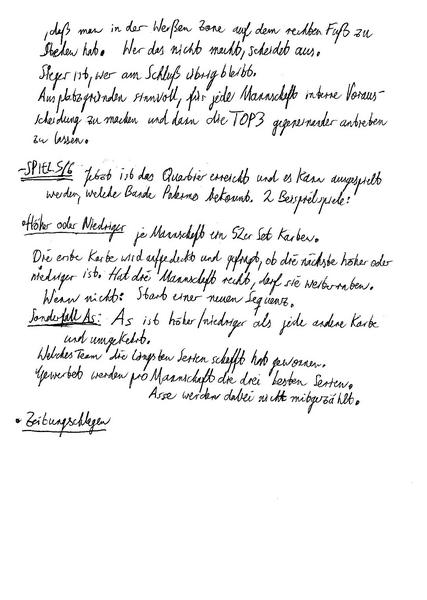 , daß man in der Weißen Zone auf dem rechten Fuß zu
stehen hat. Wer das nicht macht, scheidet aus.
Sieger ist, wer am Schluß übrig bleibt.
Aus platzgründen sinnvoll, für jede Mannschaft interne Voraus-
scheidung zu machen und dann die TOP3 gegeneinander antreten
zu lassen.
-SPIEL 5/6 Jetzt ist das Quartier erreicht und es kann ausgespielt
werden, welche Bande Palermo bekommt. 2 Beispielspiele:
• Höher oder Niedriger je Mannschaft ein 52er Set Karten.
Die erste Karte wird aufgedeckt und gefragt, ob die nächste höher oder
niedriger ist. Hat die Mannschaft recht, darf sie weiterraten.
Wenn nicht: Start einer neuen Sequenz.
Sonderfall As: As ist höher/niedriger als jede andere Karte
und umgekehrt.
Welches Team die längsten Serien schafft hat gewonnen.
Gewertet werden pro Mannschaft die drei besten Serien.
Asse werden dabei nicht mitgezählt.
• Zeitungschlagen